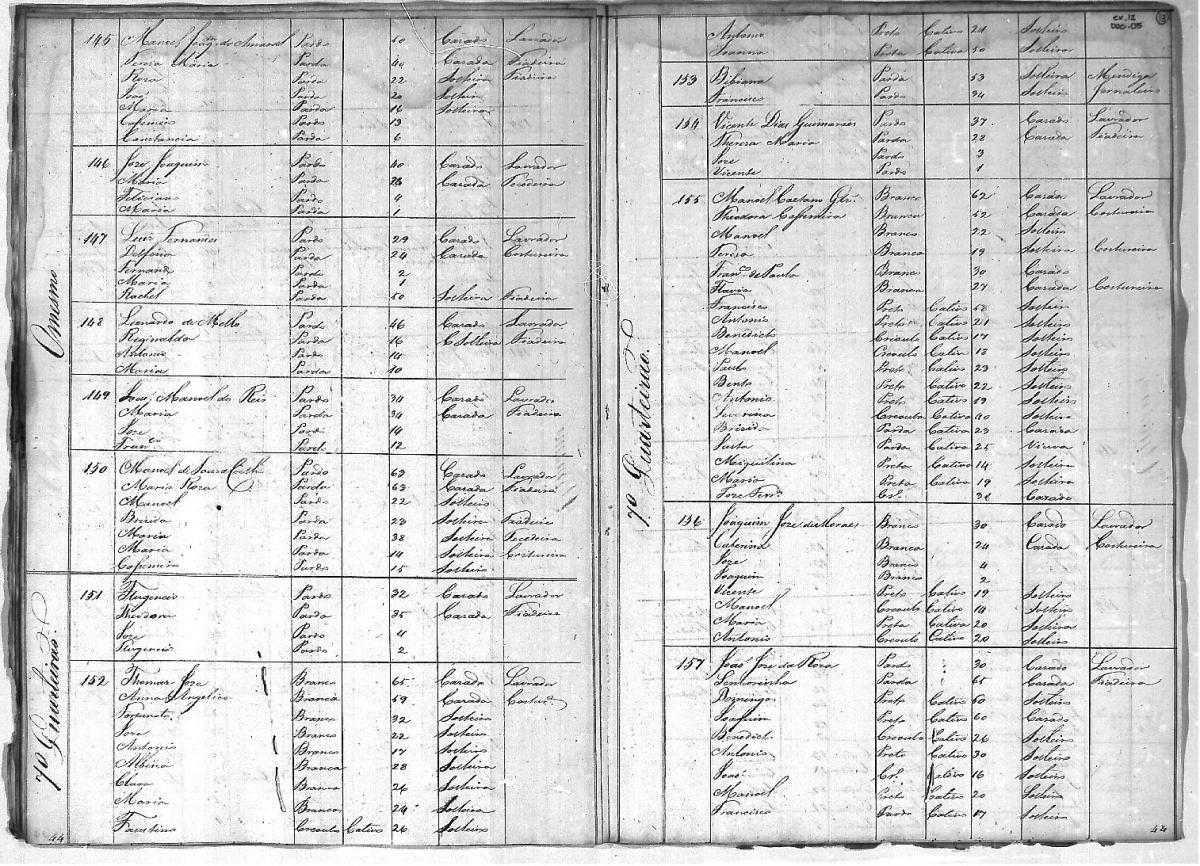 Omesmo
145 Manoel Joaq. do Amaral Pardo 50 Cazado Lavrador
Tereza Maria Parda 40 Cazada Fiadeira
Roza Parda 22 Solteira Fiadeira
Joaõ Pardo 20 Solteiro
Maria Parda 16 Solteira
Cafemiro Pardo 13
Constancia Parda 6
146 Joze Joaquim Pardo 40 Cazado Lavrador
Maria Parda 26 Cazada Tecedeira
Feliciano Pardo 4
Maria Parda 1
147 Luiz Fernandes Pardo 29 Cazado Lavrador
Delfina Parda 24 Cazada Costureira
Fernando Pardo 2
Maria Parda 1
Rachel Parda 50 Solteira Fiadeira
148 Leonardo de Mello Pardo 46 Cazado Lavrador
Reginalda Parda 16 Solteira Fiadeira
Antonio Pardo 14
Maria Parda 10
149 Joaõ Manoel do Reis Pardo 34 Cazado Lavrador
Maria Parda 34 Cazada Fiadeira
Joze Pardo 14
Fran.co Pardo 12
150 Manoel de Souza Pardo 63 Cazado Lavrador
Maria Roza Parda 63 Cazada Fiadeira
Manoel Pardo 22 Solteiro
Brizida Parda 23 Solteira Fiadeira
Maria Parda 38 Solteira Tecedeira
Maria Parda 14 Solteira Costureira
Cafemiro Pardo 15 Solteiro
7º Quarteirao.
151 Flugencio Pardo 32 Cazado Lavrador
Theodora Parda 35 Cazada Fiadeira
Joze Pardo 4
Flugencio Pardo 2
152 Thomaz Joze Branco 65 Cazado Lavrador
Anna Angelica Branca 59 Cazada Costur.
Fortunato Branco 32 Solteiro
Joze Branco 22 Solteiro
Antonio Branco 17 Solteiro
Albina Branca 28 Solteira
Clara Branca 26 Solteira
Maria Branca 24 Solteira
Faustino Creoulo Cativo 26 Solteiro
44
cx.12
DOC.05
13
Antonio Preto Cativo 21 Solteiro
Joanna Preta Cativa 50 Solteira
153 Bibiana Parda 53 Solteira Mendiga
Francisco Pardo 34 Solteiro Jornaleiro
7º Quarteirao.
154 Vicente Dias Guimaraes Pardo 37 Cazado Lavrador
Thereza Maria Parda 28 Cazada Fiadeira
Joze Pardo 3
Vicente Pardo 1
155 Manoel Caetano Branco 62 Cazado Lavrador
Theodora Cafemira Branca 52 Cazada Costureira
Manoel Branco 22 Solteiro
Tereza Branca 19 Solteira Costureira
Fran.co de Paula Branco 30 Cazado
Flavia Branca 27 Cazada Costureira
Francisco Preto Cativo 58 Solteiro
Antonio Preto Cativo 21 Solteiro
Benedicto Creoulo Cativo 17 Solteiro
Manoel Creoulo Cativo 13 Solteiro
Paulo Preto Cativo 23 Solteiro
Bento Preto Cativo 22 Solteiro
Antonio Preto Cativo 19 Solteiro
Severina Creoula Cativa 40 Solteira
Brizida Parda Cativa 23 Cazada
Parda Cativa 25 Viuva
Miquilina Preta Cativa 14 Solteira
Maria Preta Cativa 19 Solteira
Joze Fer.a Cr.o 31 Cazado
156 Joaquim Joze de Moraes Branco 30 Cazado Lavrador
Caterina Branca 24 Cazada Costureira
Joze Branco 4
Joaquim Branco 2
Vicente Preto Cativo 19 Solteiro
Manoel Creoulo Cativo 14 Solteiro
Maria Preta Cativa 20 Solteira
Antonio Creoulo Cativo 20 Solteiro
157 Joaõ Joze da Roza Pardo 30 Cazado Lavrador
Senhorinha Parda 65 Cazada Fiadeira
Domingos Preto Cativo 50 Solteiro
Joaquim Preto Cativo 60 Cazado
Benedicto Creoulo Cativo 26 Solteiro
Antonio Preto Cativo 30 Solteiro
Joaõ Cr.o Cativo 16 Solteiro
Manoel Preto Cativo 20 Solteiro
Francisco Pardo Cativo 17 Solteiro
44